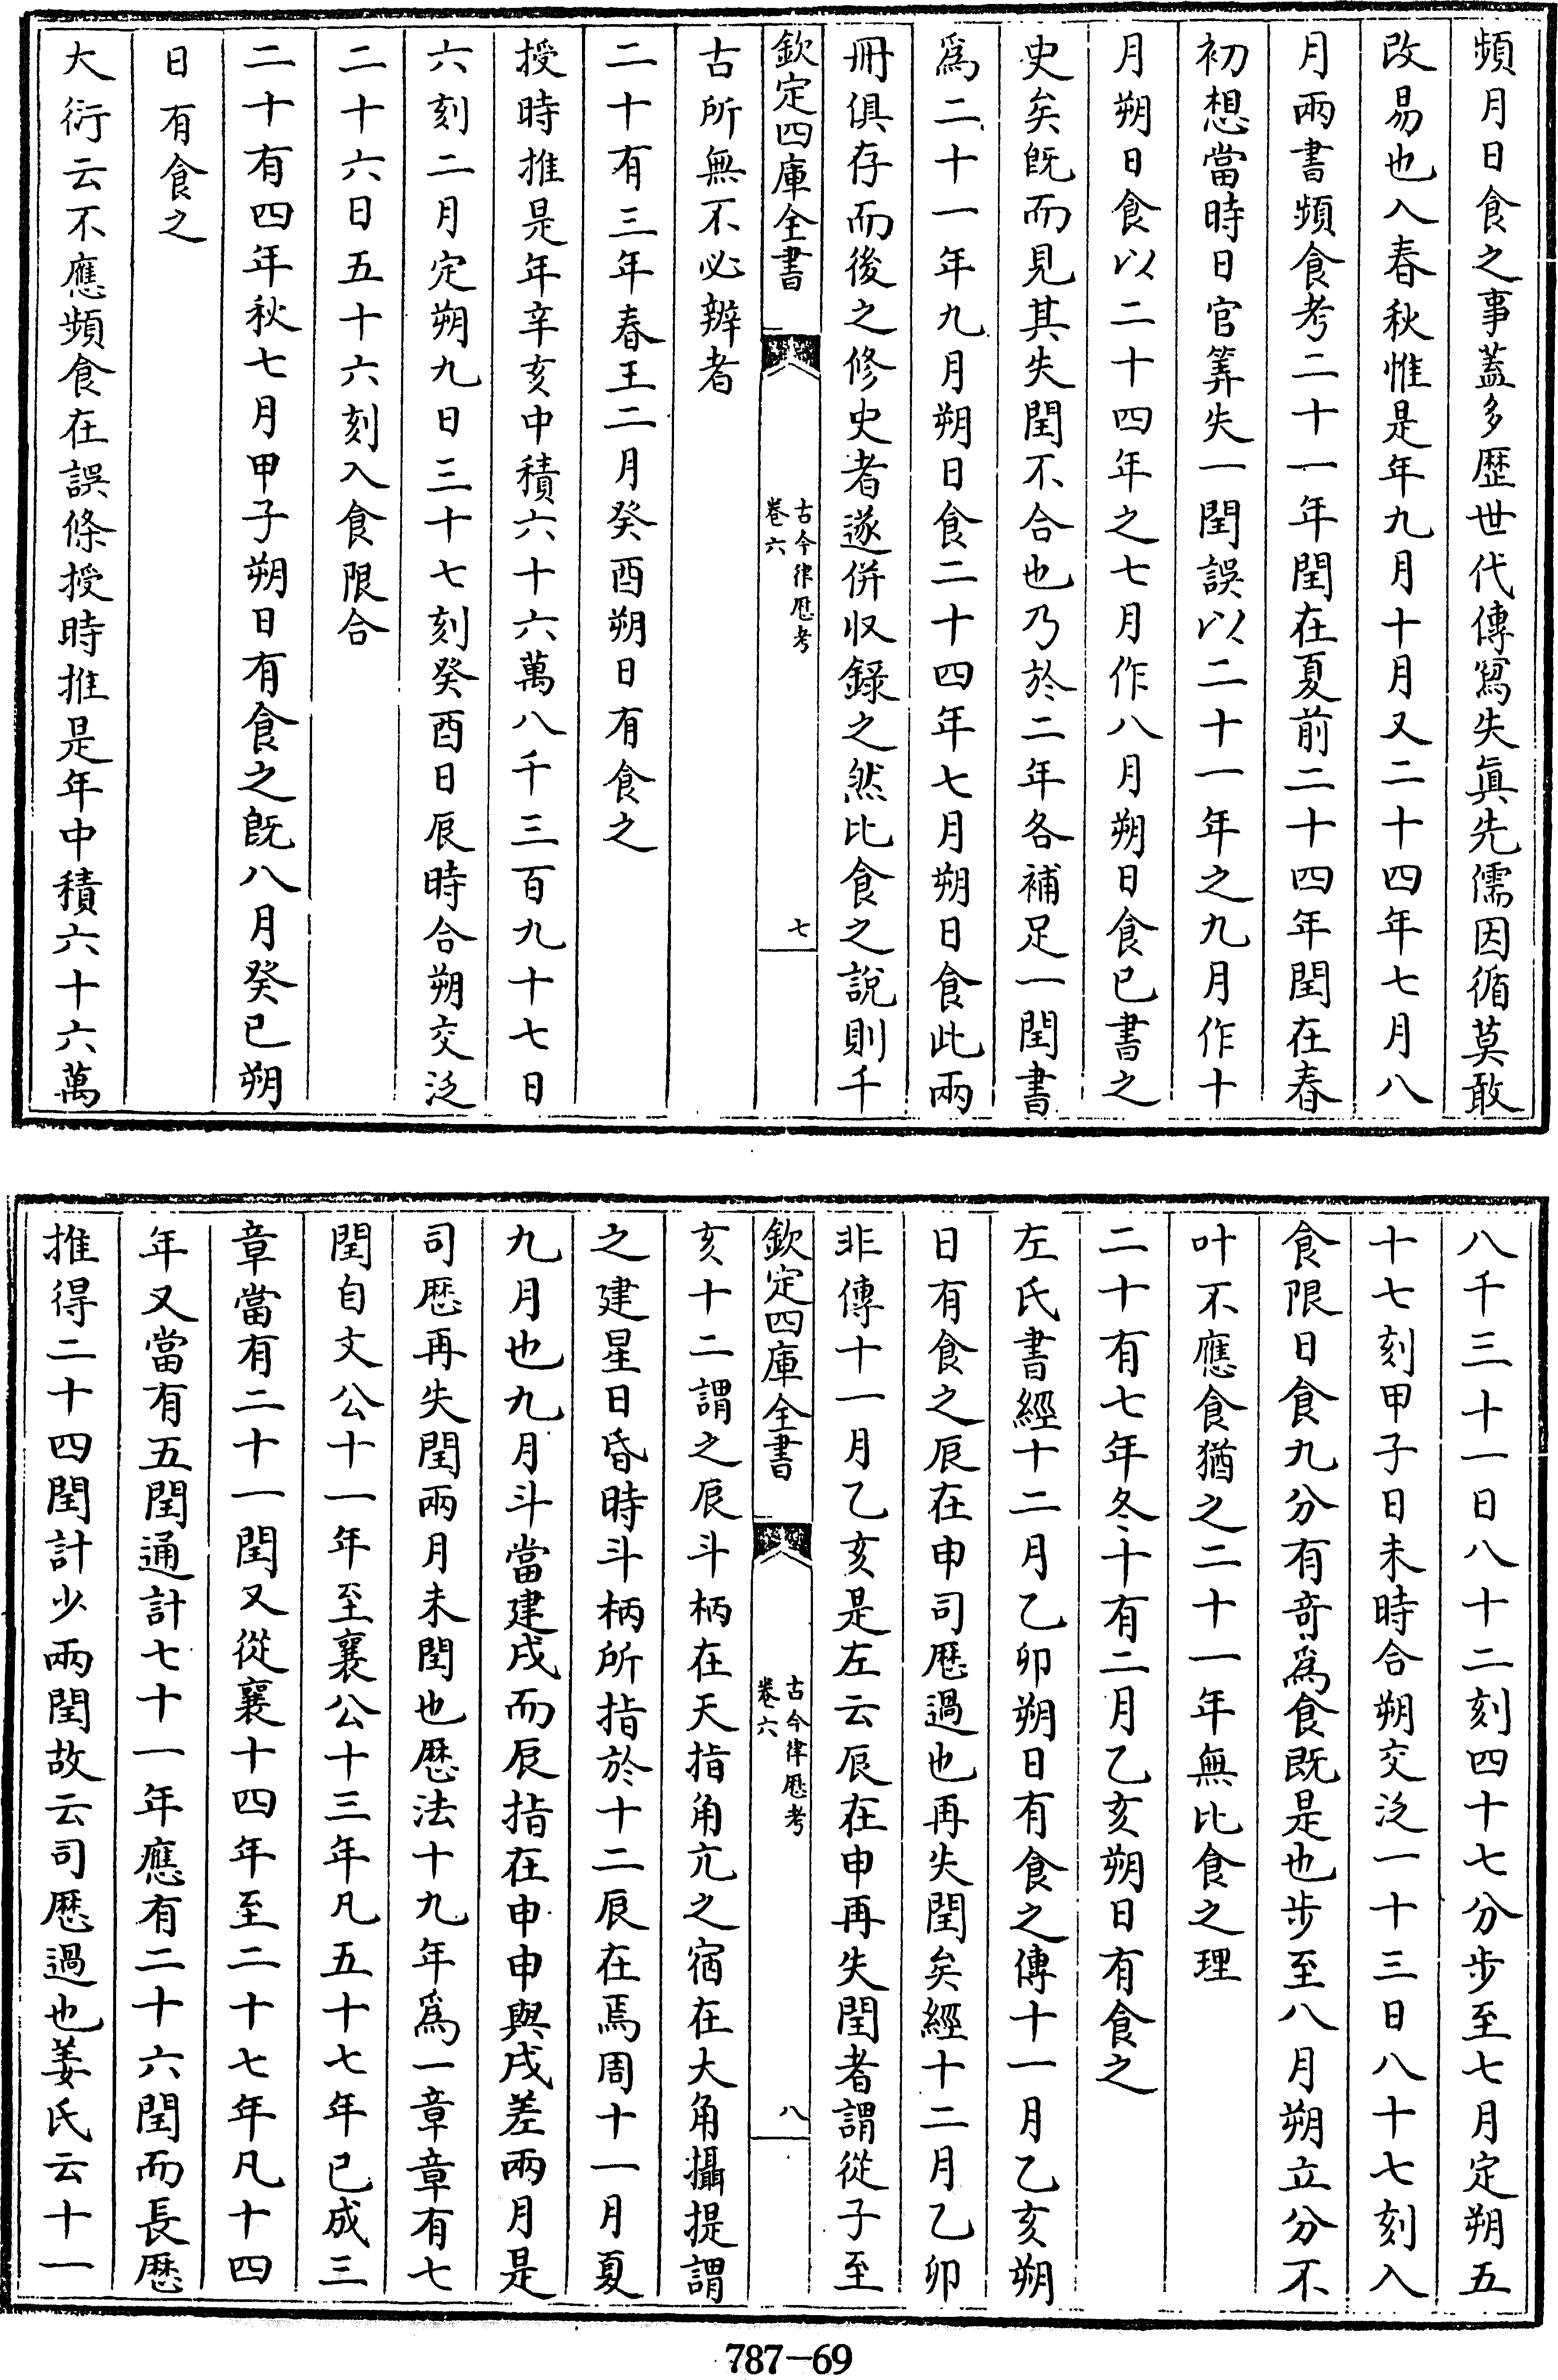 頻月日食之事蓋多歴世代傳寫失真先儒因循莫敢
改易也入春秋惟是年九月十月又二十四年七月八
月兩書頻食考二十一年閏在夏前二十四年閏在春
初想當時日官筭失一閏誤以二十一年之九月作十
月朔日食以二十四年之七月作八月朔日食已書之
史矣旣而見其失閏不合也乃於二年各補足一閏書
爲二十一年九月朔日食二十四年七月朔日食此兩
冊俱存而後之修史者遂併収錄之然比食之說則千
欽定四庫全書
古今律厯考
卷六
七
古所無不必辨者
二十有三年春王二月癸酉朔日有食之
授時推是年辛亥中積六十六萬八千三百九十七日
六刻二月定朔九日三十七刻癸酉日辰時合朔交泛
二十六日五十六刻入食限合
二十有四年秋七月甲子朔日有食之旣八月癸巳朔
日有食之
大衍云不應頻食在誤條授時推是年中積六十六萬
八千三十一日八十二刻四十七分步至七月定朔五
十七刻甲子日未時合朔交泛一十三日八十七刻入
食限日食九分有竒爲食既是也步至八月朔立分不
叶不應食猶之二十一年無比食之理
二十有七年冬十有二月乙亥朔日有食之
左氏書經十二月乙卯朔日有食之傳十一月乙亥朔
日有食之辰在申司厯過也再失閏矣經十二月乙卯
非傳十一月乙亥是左云辰在申再失閏者謂從子至
欽定四庫全書
古今律厯考
卷六
八
亥十二謂之辰斗柄在天指角亢之宿在大角攝提謂
之建星日昏時斗柄所指於十二辰在焉周十一月夏
九月也九月斗當建戌而辰指在申申與戌差兩月是
司厯再失閏兩月未閏也厯法十九年爲一章章有七
閏自文公十一年至襄公十三年凡五十七年已成三
章當有二十一閏又從襄十四年至二十七年凡十四
年又當有五閏通計七十一年應有二十六閏而長厯
推得二十四閏計少兩閏故云司厯過也姜氏云十一
787-69